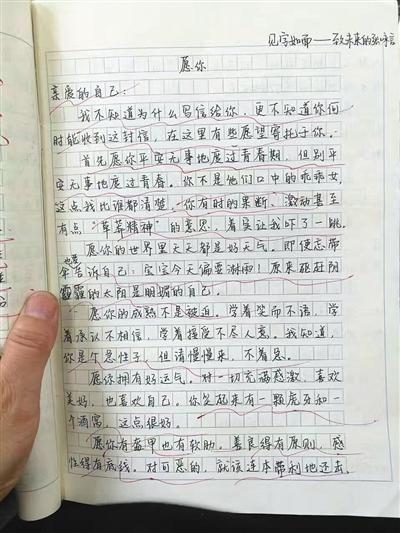 见字如面——致未来的张
愿你
亲爱的自己:
我不知道为什么写信给你,更不知道你何
时能收到这封信,在这里有些愿望寄托于你。
首先愿你平安无事地度过青春期,但别平
安无事地度过青春。你不是他们口中的乖乖女,
这点我比谁都清楚。你有时的果断、激动甚至
有点“草莽精神”的意思,着实让我吓了一跳。
愿你的世界里天天都是好天气。即便忘带
也要
伞告诉自己:宝宝今天偏要淋雨!原来驱赶阴
霾的太阳是明媚的自己。
愿你的成熟不是被迫。学着笑而不语,学
着承认不相信,学着接受不尽人意。我知道,
你是个急性子,但请慢慢来,不着急。
愿你拥有好运气。对一切充满感激,喜欢
美好,也喜欢自己。你笑起来有一颗虎牙和一
个酒窝,这点很好。
愿你有盔甲也有软肋。善良得有原则,感
性得有底线。对可恶的,就该连本带利地还击,